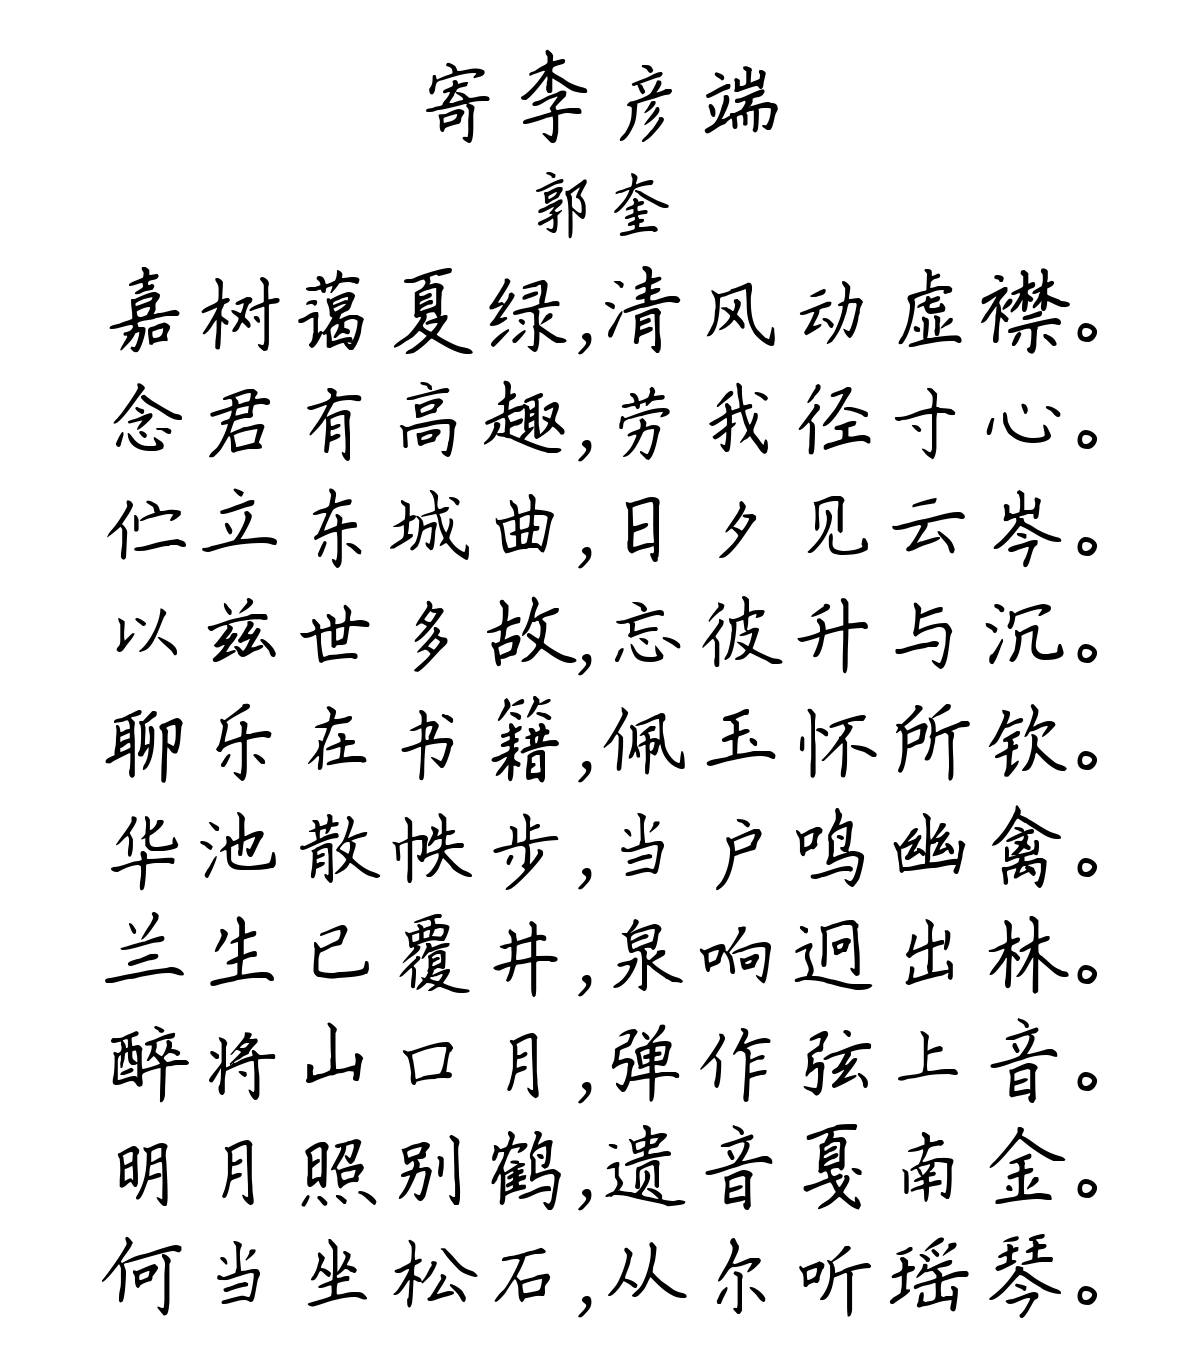 寄李彦端
郭奎
嘉树蔼夏绿,清风动虚襟。
念君有高趣,劳我径寸心。
伫立东城曲,日夕见云岑。
以兹世多故,忘彼升与沉。
聊乐在书籍,佩玉怀所钦。
华池散帙步,当户鸣幽禽。
兰生已覆井,泉响迥出林。
醉将山口月,弹作弦上音。
明月照别鹤,遗音戛南金。
何当坐松石,从尔听瑶琴。